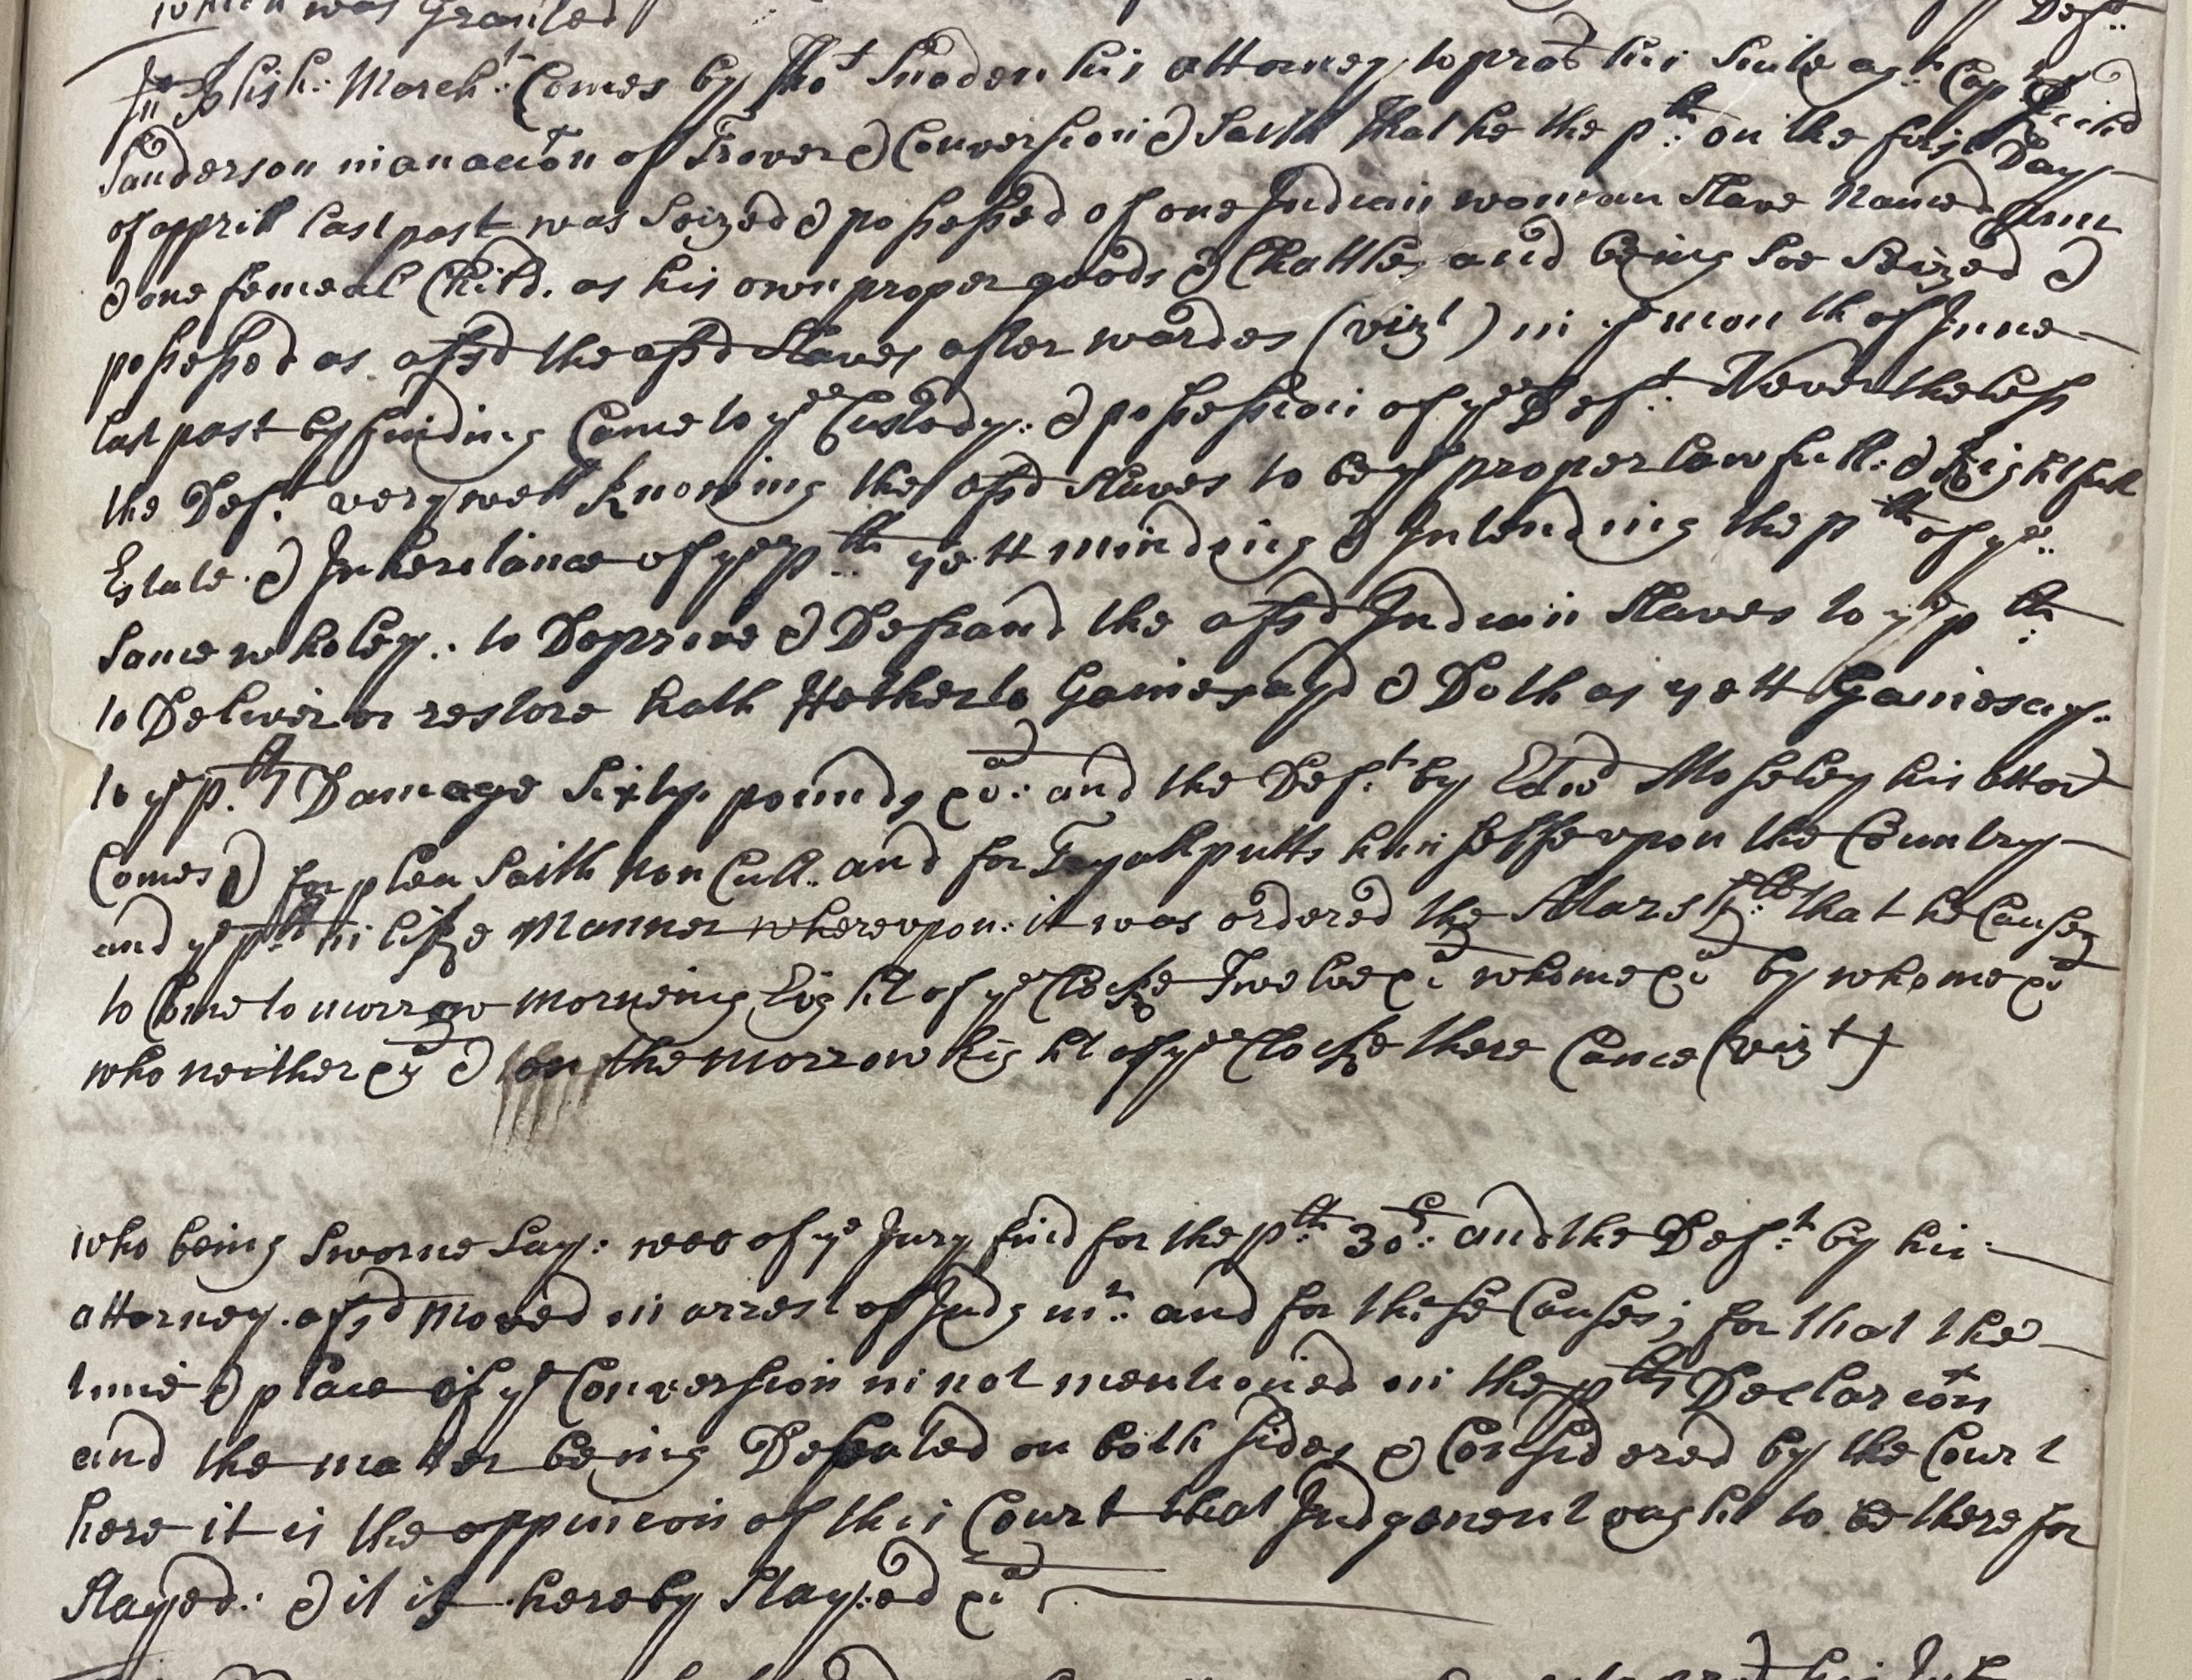 which was Granted
Deft:
Jno Plish: March.t Comes by Tho.t Snoden his attorney to pros his Suite agt. Cap
Sanderson in an acc̄on of Trover & Conversion & Saith that he the plt. on the first Day
of aprill last past was Seized & possessed of one Indian woman Slave Named
& one femeal Child. as his own proper goods & Chattles and being Soe Seized &
possessed as afsd the afsd Slaves after wardes (vizt) in ye month of June
last past by finding Came to ye Custody: & possession of ye Deft: Nevertheless
the Deft. very well Knowing the afsd Slaves to be ye proper lawfull: & Rightfull
Estate & Inheritance of ye plt. yett minding & Intending the plt of ye:
Same wholey: to Deprive & Defraud the afsd Indian Slaves to ye plt.
to Deliver or restore hath Hetherto Gainesayd & Doth as yett Gainesay:
to ye plts Damage Sixty pounds &ca: and the Deft. by Edwd Moseley his attor
Comes & for plea Saith Non Cull. and for Tryall putts him selfe vpon the Country
and ye plt. in like Manner wherevpon: it was ordered the Marsll that he Cause
to Come to morrow morneing Eight of ye Clocke Twelve &c whome &c by whome &c
who neither &c & on the morrow Eight of ye Clocke there Came (vizt)
who being Sworne Say: wee of ye Jury find for the plt. 30£: and the Deft. by his
attorney. afsd moved in arrest of Judgmt: and for these Causes; for that the
time & place of ye Conversion in not mentioned in the plts Declarac̄on
and the matter being Debated on both sides & Considered by the Court
here it is the oppinion of this Court that Judgement ought to be there for
Stayed: & it is hereby Stayed &c